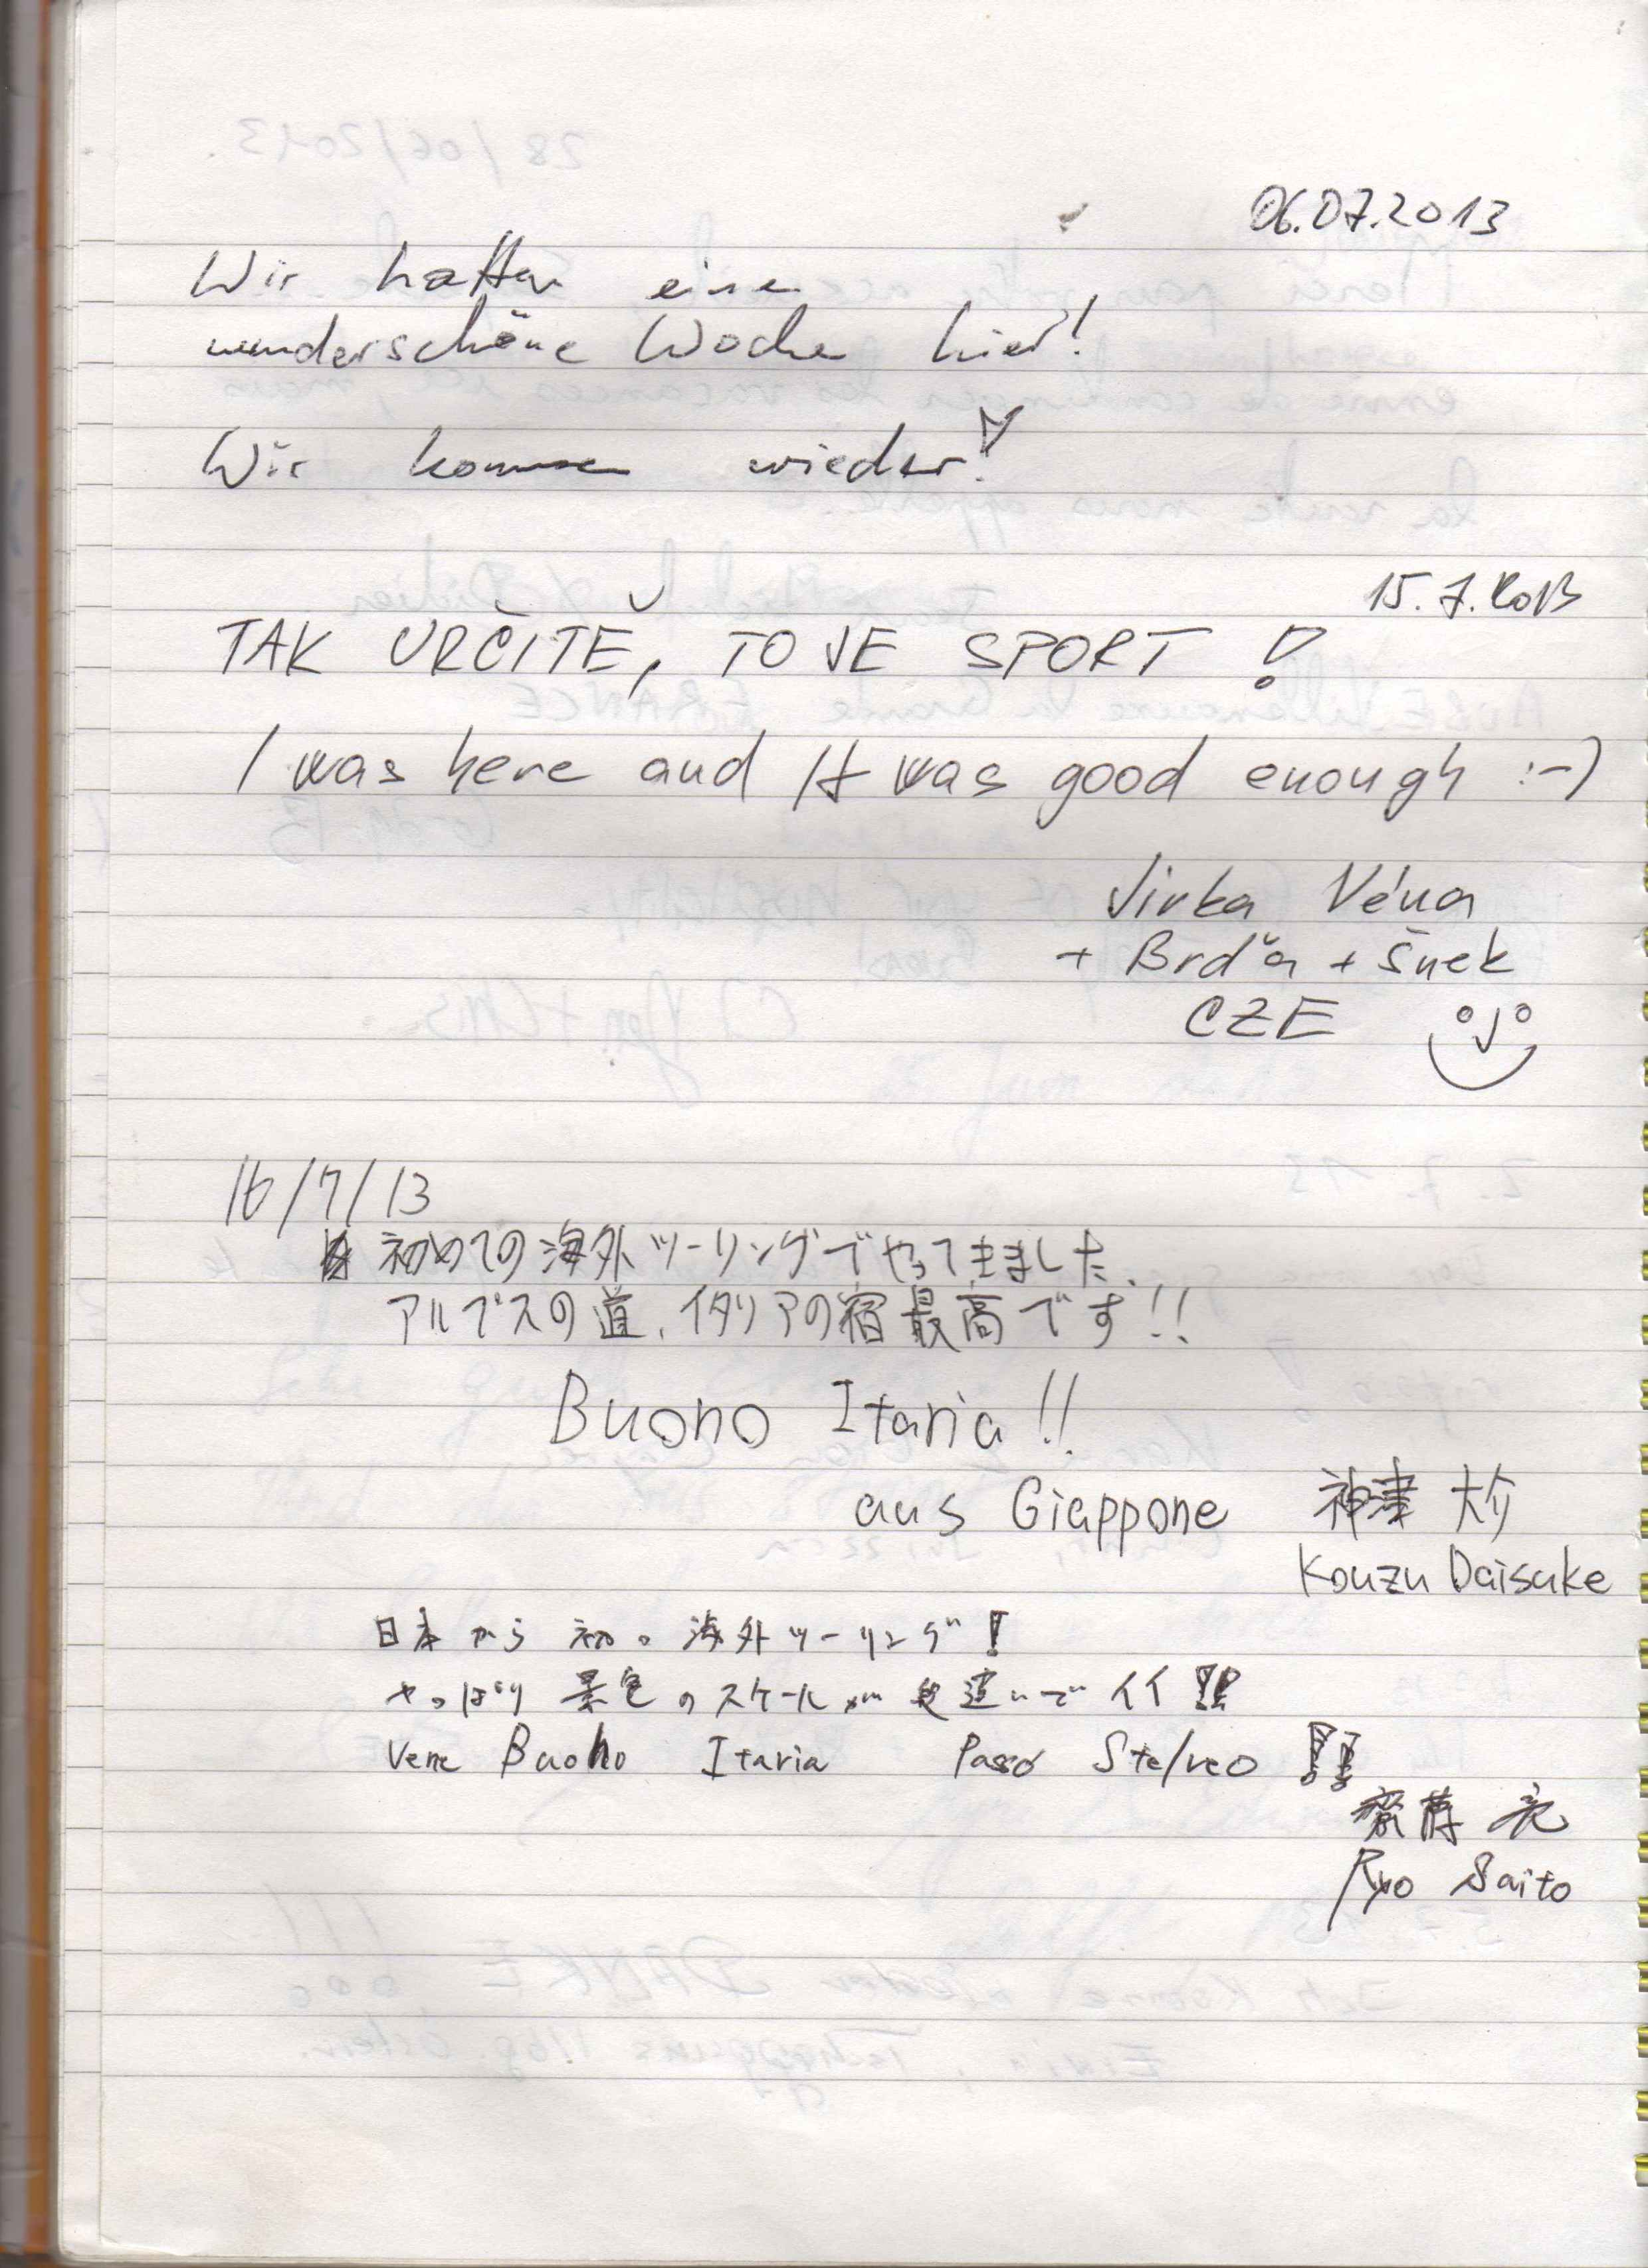 06.07.2013
Wir hatten eine
wunderschöne Woche hier!
Wir kommen wieder!
15.7.2013
TAK URČITĚ, TO JE SPORT!
I was here and It was good enough :-)
Jirka Véna
+ Brďa + Šnek
CZE
16/7/13
初めての海外ツーリングでやってきました.
アルプスの道、イタリアの宿最高です!!
Buono Itaria!!
aus Giappone 神津 大介
Kouzu Daisuke
日本から 初の 海外ツーリング!
やっぱり 景色のスケールが 段違いで イイ!!
Vene Buono Itaria Passo Stelveo !!
齋藤 亮
Ryo Saito